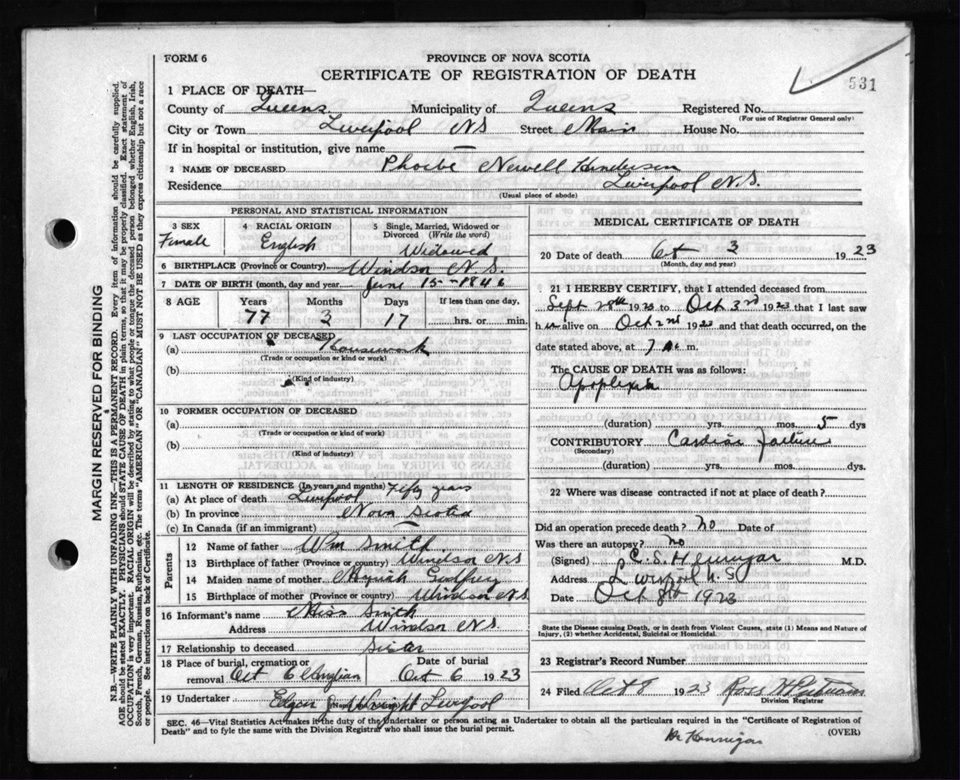 FORM 6
PROVINCE OF NOVA SCOTIA
CERTIFICATE OF REGISTRATION OF DEATH
531
1 PLACE OF DEATH—
County of Queens Municipality of Queens Registered No.
(For use of Registrar General only)
City or Town Liverpool NS Street Main House No.
If in hospital or institution, give name —
2 NAME OF DECEASED Phoebe Newell Henderson
Residence Liverpool N.S.
(Usual place of abode)
PERSONAL AND STATISTICAL INFORMATION
3 SEX 4 RACIAL ORIGIN 5 Single, Married, Widowed or Divorced (Write the word)
Female English Widowed
6 BIRTHPLACE (Province or Country) Windsor N.S.
7 DATE OF BIRTH (month, day and year) June 15—1846
8 AGE Years Months Days If less than one day,
77 3 17 hrs. or min.
9 LAST OCCUPATION OF DECEASED
(a) Housework
(Trade or occupation or kind or work)
(b)
(Kind of industry)
10 FORMER OCCUPATION OF DECEASED
(a)
(Trade or occupation or kind of work)
(b)
(Kind of industry)
11 LENGTH OF RESIDENCE (In years and months)
(a) At place of death Liverpool Fifty years
(b) In province Nova Scotia
(c) In Canada (if an immigrant) —
Parents
12 Name of father Wm Smith
13 Birthplace of father (Province or country) Windsor NS
14 Maiden name of mother Godfrey
15 Birthplace of mother (Province or country) Windsor NS
16 Informant's name Miss Smith
Address Windsor NS
17 Relationship to deceased Sister
18 Place of burial, cremation or removal Date of burial
Oct 6 1923
19 Undertaker Edgar Wright Liverpool
MEDICAL CERTIFICATE OF DEATH
20 Date of death Oct 3 1923
(Month, day and year)
21 I HEREBY CERTIFY, that I attended deceased from
Sept 28th 1923 to Oct 3rd 1923 that I last saw
h er alive on Oct 2nd 1923 and that death occurred, on the
date stated above, at 7 a m.
The CAUSE OF DEATH was as follows:
Apoplexia
(duration) yrs. mos. 5 dys
CONTRIBUTORY Cardiac failure
(Secondary)
(duration) yrs. mos. dys.
22 Where was disease contracted if not at place of death?
Did an operation precede death? no Date of
Was there an autopsy? no
(Signed) C. S. Hennigar M.D.
Address Liverpool N.S.
Date Oct 3rd 1923
State the Disease causing Death, or in death from Violent Causes, state (1) Means and Nature of Injury, (2) whether Accidental, Suicidal or Homicidal.
23 Registrar's Record Number
24 Filed Oct 8 1923
Division Registrar
SEC. 46—Vital Statistics Act makes it the duty of the Undertaker or person acting as Undertaker to obtain all the particulars required in the "Certificate of Registration of
Death" and to fyle the same with the Division Registrar who shall issue the burial permit.
(OVER)
Dr Hennigar
MARGIN RESERVED FOR BINDING
N.B.—WRITE PLAINLY WITH UNFADING INK—THIS IS A PERMANENT RECORD. Every item of information should be carefully supplied.
AGE should be stated EXACTLY. PHYSICIANS should STATE CAUSE OF DEATH in plain terms, so that it may be properly classified. Exact statement of
OCCUPATION is very important. RACIAL ORIGIN will be described by stating to what people or tongue the deceased person belonged whether English, Irish,
Scotch, French, German, Russian, Ruthenian, etc. The terms "AMERICAN" or "CANADIAN" MUST NOT BE USED as they express citizenship but not a race
or people. See instructions on back of Certificate.